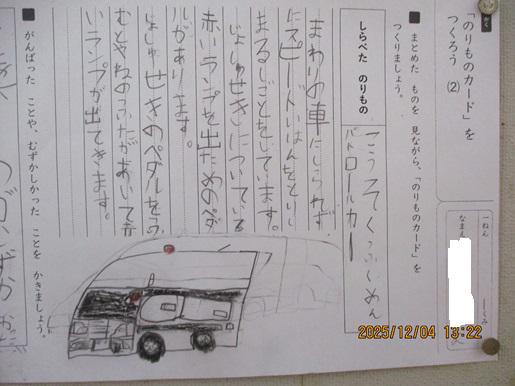 「のりものカード」を
つくろう (2)
一ねん
くみ
なまえ
■ まとめた ものを 見ながら、「のりものカード」を
つくりましょう。
しらべた のりもの
こうそくっふくめん
パトロールカー
まわりの車にしられず
にスピードいはんをとりし
まるしごとをしています。
じょしゅせきいについている
赤いランプを出ためのペダ
ルがあります。
じょしゅせきのペダルをふ
むとやねのふたがあいて赤
いランプが出てきます。
■ がんばった ことや、むずかしかった ことを かきましょう。
2025/12/04 13:22